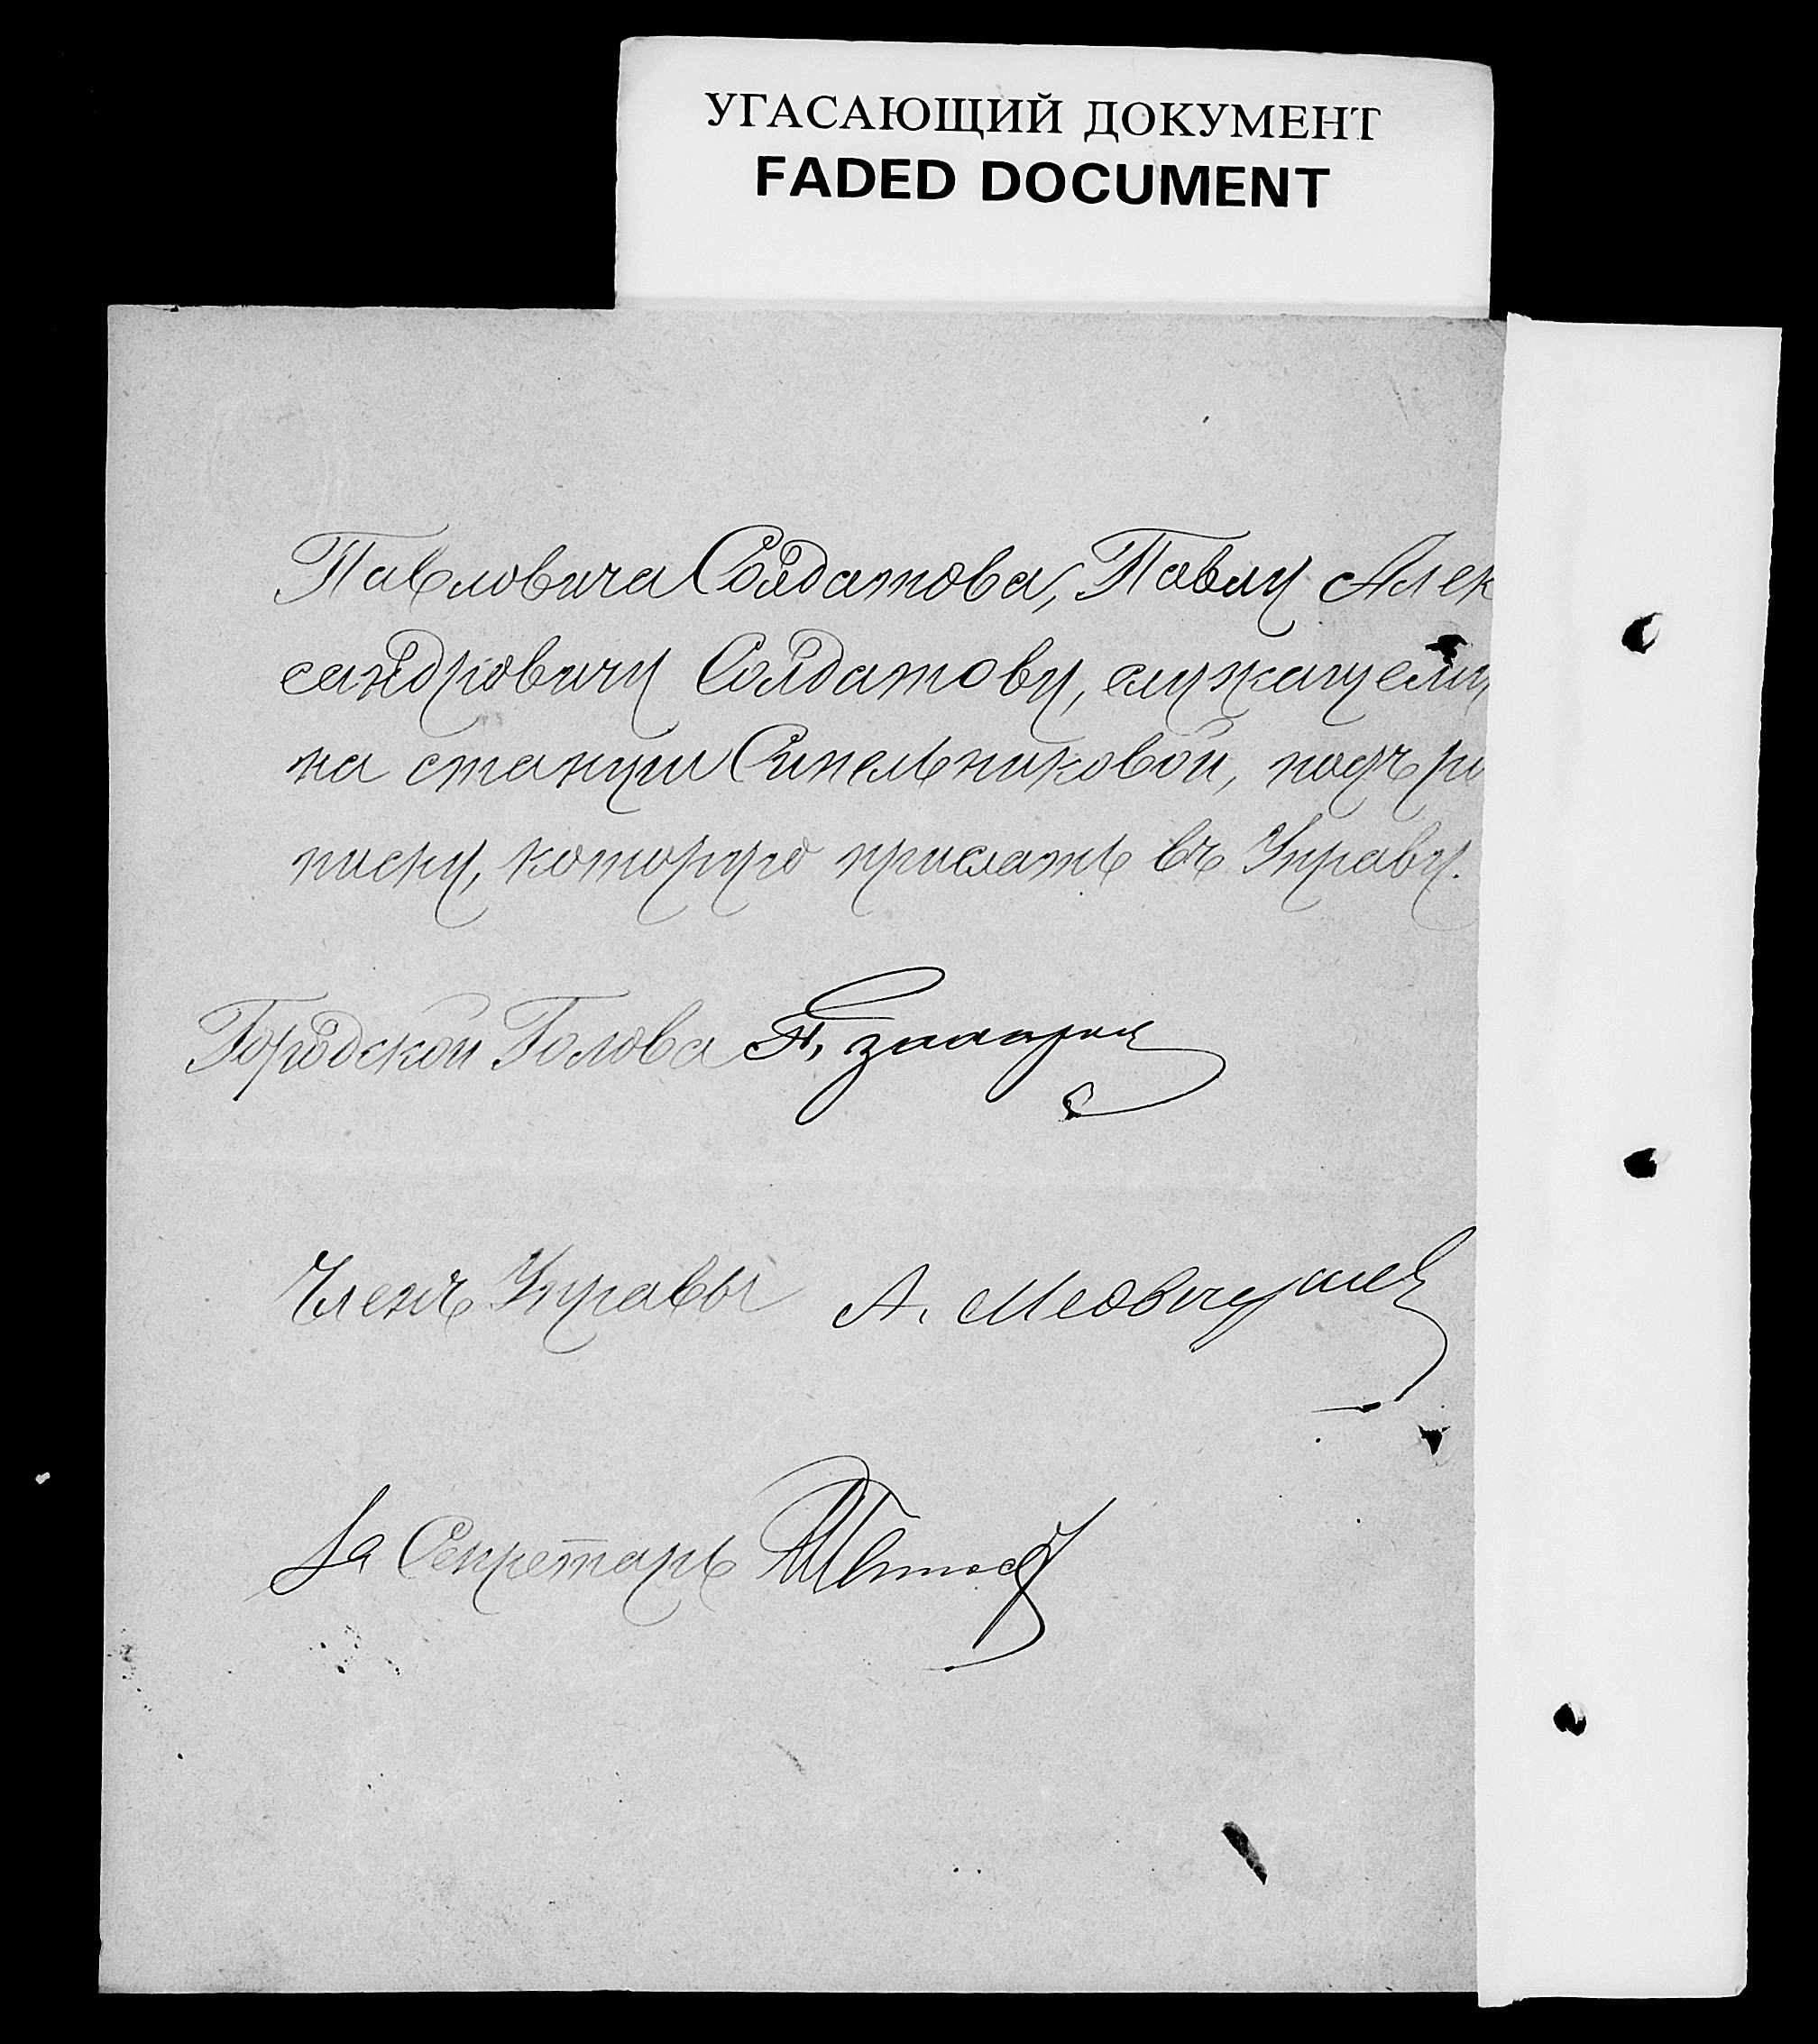 УГАСАЮЩИЙ ДОКУМЕНТ
FADED DOCUMENT
Павловича Солдатова, Павлу Алек
сандровичу Солдатову, служащему
на станции Синельниковой, подъ ро
писку, которую прислать въ Управу.
Городской Голова
Членъ Управы А.
За Секретаря